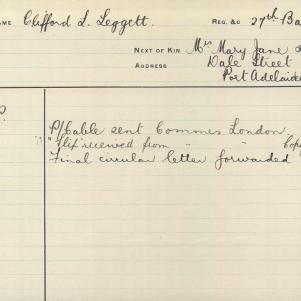 NAME Clifford L. Leggett. REG. &c 27th Ba
NEXT OF KIN Mrs Mary Jane
ADDRESS Dale Street
Port Adelaide
P/Cable sent Commes London
"Slip" received from " " Copy
Final circular letter forwarded